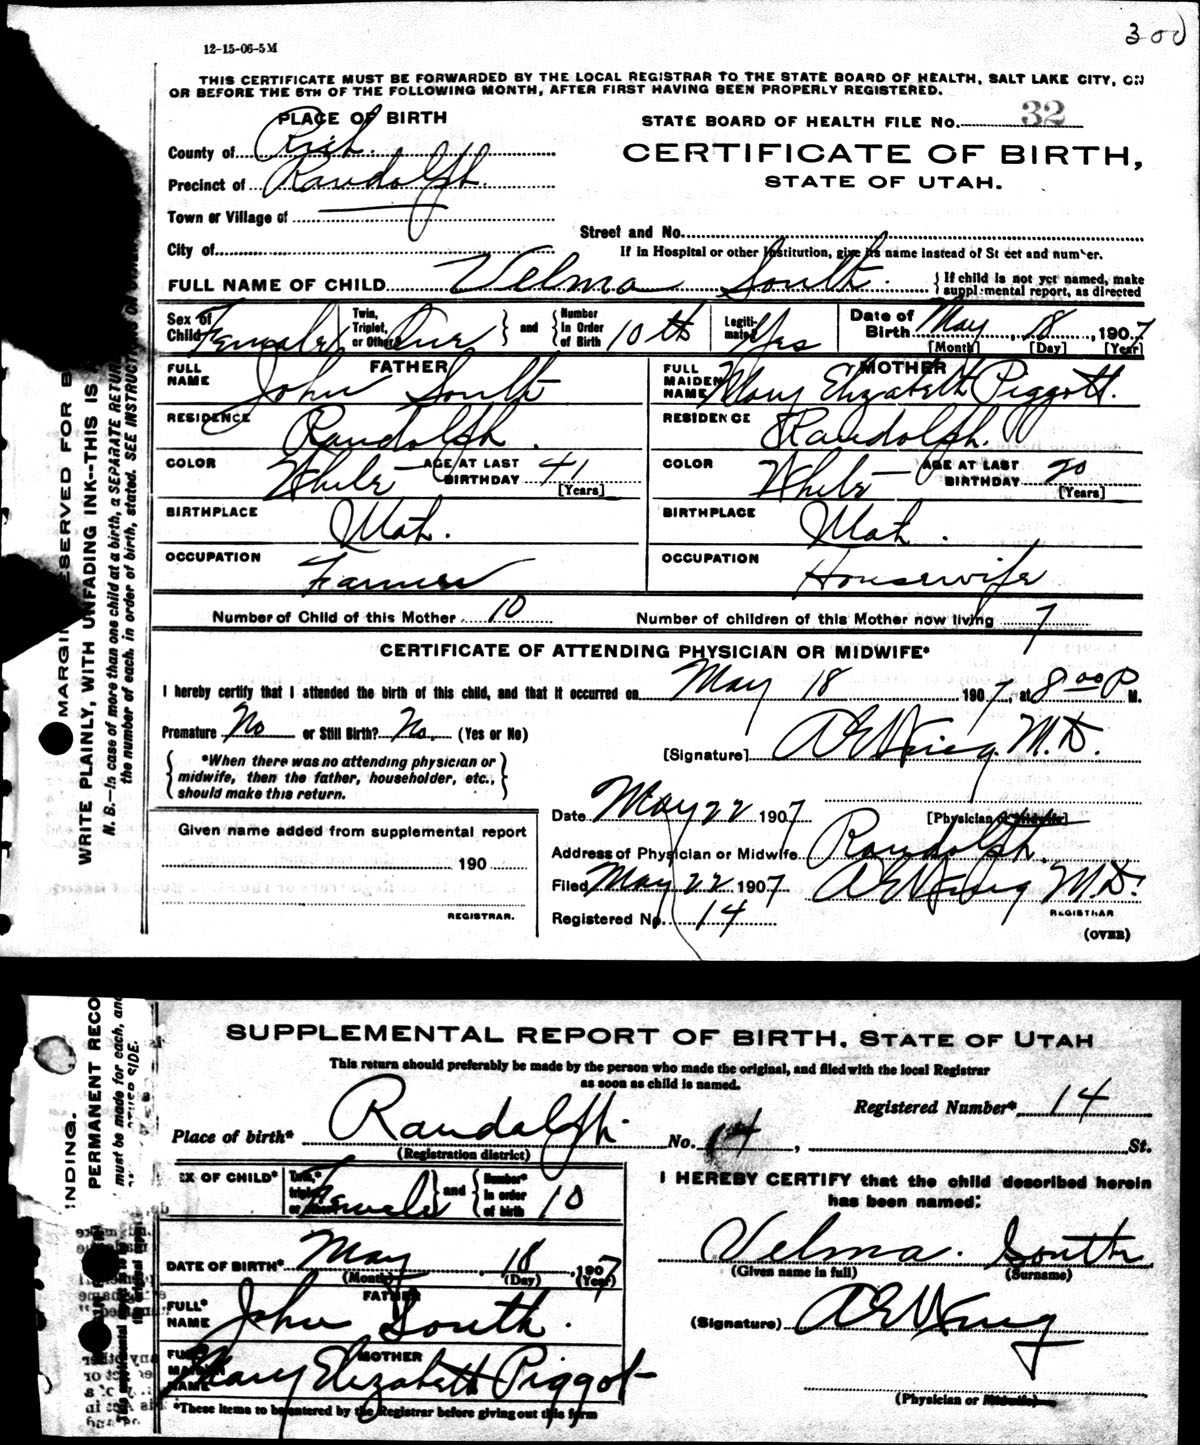 300
12-15-06-5M
THIS CERTIFICATE MUST BE FORWARDED BY THE LOCAL REGISTRAR TO THE STATE BOARD OF HEALTH, SALT LAKE CITY, ON
OR BEFORE THE 5TH OF THE FOLLOWING MONTH, AFTER FIRST HAVING BEEN PROPERLY REGISTERED.
PLACE OF BIRTH
STATE BOARD OF HEALTH FILE NO. 32
County of Rich.
CERTIFICATE OF BIRTH,
STATE OF UTAH.
Precinct of Randolph.
Town or Village of
Street and No.
City of
If in Hospital or other Institution, give its name instead of Street and number.
FULL NAME OF CHILD Velma South. {If child is not yet named, make supplemental report, as directed
Sex of Child Female Twin, Triplet, or Other One } and { Number in Order of Birth 10th Legitimate Yes Date of Birth May 18, 1907
[Month] [Day] [Year]
FATHER MOTHER
FULL NAME John South FULL MAIDEN NAME Mary Elizabeth Piggott.
RESIDENCE Randolph. RESIDENCE Randolph.
COLOR White AGE AT LAST BIRTHDAY 41 [Years] COLOR White AGE AT LAST BIRTHDAY [Years]
BIRTHPLACE Utah. BIRTHPLACE Utah.
OCCUPATION Farmer OCCUPATION Housewife
Number of Child of this Mother 10 Number of children of this Mother now living 7
CERTIFICATE OF ATTENDING PHYSICIAN OR MIDWIFE*
I hereby certify that I attended the birth of this child, and that it occurred on May 18 1907, at 8 00 P M.
Premature No or Still Birth? No. (Yes or No)
[Signature] M.D.
{ *When there was no attending physician or
midwife, then the father, householder, etc.,
should make this return. }
Date May 22 1907 [Physician or Midwife]
Given name added from supplemental report
190
REGISTRAR.
Address of Physician or Midwife Randolph.
Filed May 22 1907 M.D.
REGISTRAR
Registered No. 14
(OVER)
MARGIN RESERVED FOR B
WRITE PLAINLY, WITH UNFADING INK--THIS IS
N. B.--In case of more than one child at a birth, a SEPARATE RETUR
the number of each, in order of birth, stated. SEE INSTRUCTIONS ON
SUPPLEMENTAL REPORT OF BIRTH, STATE OF UTAH
This return should preferably be made by the person who made the original, and filed with the local Registrar
as soon as child is named.
Registered Number* 14
Place of birth* Randolph. No. 14, St.
(Registration district)
EX OF CHILD* Female Twin,* triplet } and { Number* in order of birth 10
I HEREBY CERTIFY that the child described herein
has been named:
DATE OF BIRTH* May 18, 1907
(Month) (Day) (Year)
Velma. South
(Given name in full) (Surname)
FATHER
FULL* NAME John South.
(Signature)
MOTHER
Mary Elizabeth Piggot
(Physician or Midwife)
*These items to be entered by the Registrar before giving out this form
NDING.
PERMANENT RECO
must be made for each, and
OTHER SIDE.